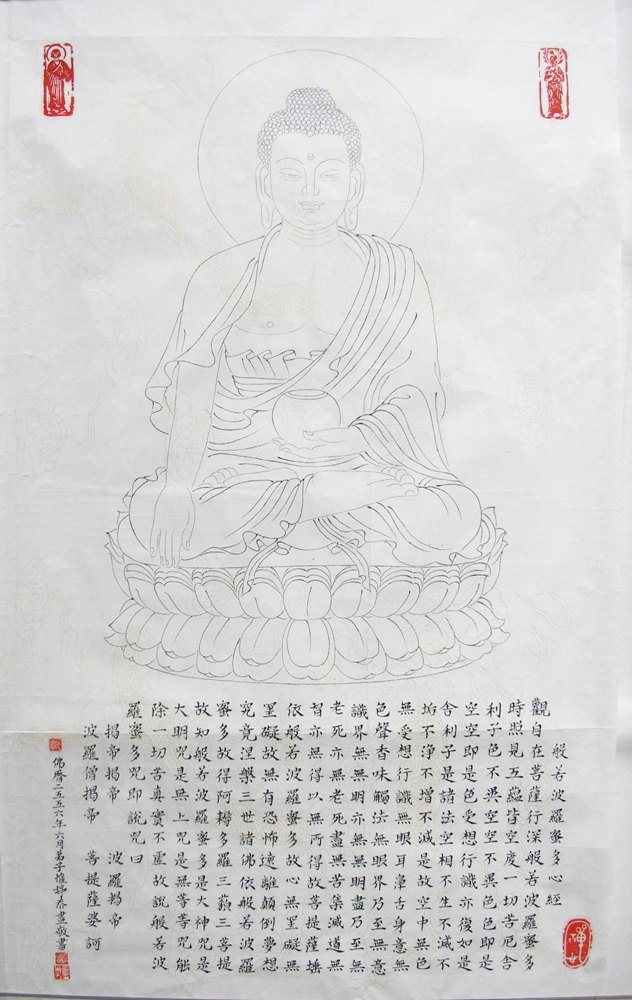 般若波羅蜜多心經
觀自在菩薩行深般若波羅蜜多
時照見五蘊皆空度一切苦厄舍
利子色不異空空不異色色即是
空空即是色受想行識亦復如是
舍利子是諸法空相不生不滅不
垢不淨不增不減是故空中無色
無受想行識無眼耳鼻舌身意無
色聲香味觸法無眼界乃至無意
識界無無明亦無無明盡乃至無
老死亦無老死盡無苦集滅道無
智亦無得以無所得故菩提薩埵
依般若波羅蜜多故心無罣礙無
罣礙故無有恐怖遠離顛倒夢想
究竟涅槃三世諸佛依般若波羅
蜜多故得阿耨多羅三藐三菩提
故知般若波羅蜜多是大神咒是
大明咒是無上咒是無等等咒能
除一切苦真實不虛故說般若波
羅蜜多咒即說咒曰
揭帝揭帝 波羅揭帝
波羅僧揭帝 菩提薩婆訶
佛曆二五五六年六月弟子 畫敬書